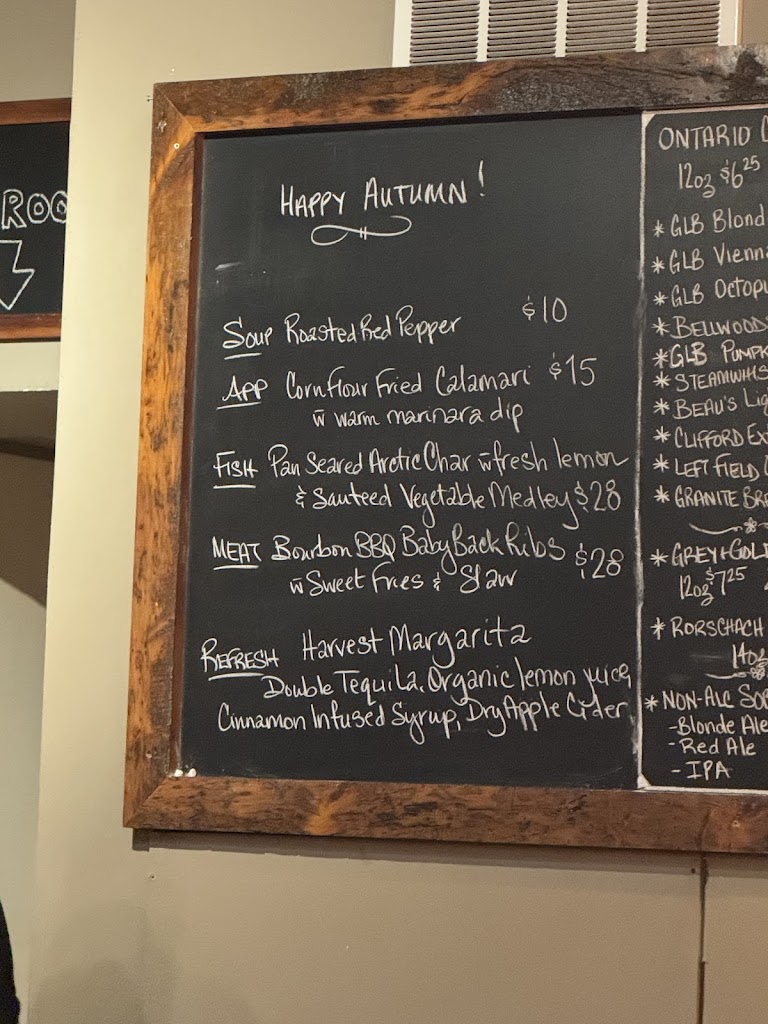 ROO
HAPPY AUTUMN!
SOUP Roasted Red Pepper $10
APP Corn flour Fried Calamari $15
w̄ warm marinara dip
FISH Pan Seared Arctic Char w̄ fresh lemon
& Sauteed Vegetable Medley $28
MEAT Bourbon BBQ Baby Back Ribs $28
w̄ Sweet Fries & Slaw
REFRESH Harvest Margarita
Double Tequila, Organic lemon juice,
Cinnamon Infused Syrup, Dry Apple Cider
ONTARIO C
12oz $6.25
* GLB Blond
* GLB Vienna
* GLB Octopu
* BELLWOODS
* GLB PUMPK
* STEAMWHIS
* BEAU'S Lig
* CLIFFORD Ex
* LEFT FIELD
* GRANITE BR
* GREY+GOLD
12oz $7.25
* RORSCHACH
14oz
* NON-ALC SOB
- Blonde Ale
- Red Ale
- IPA